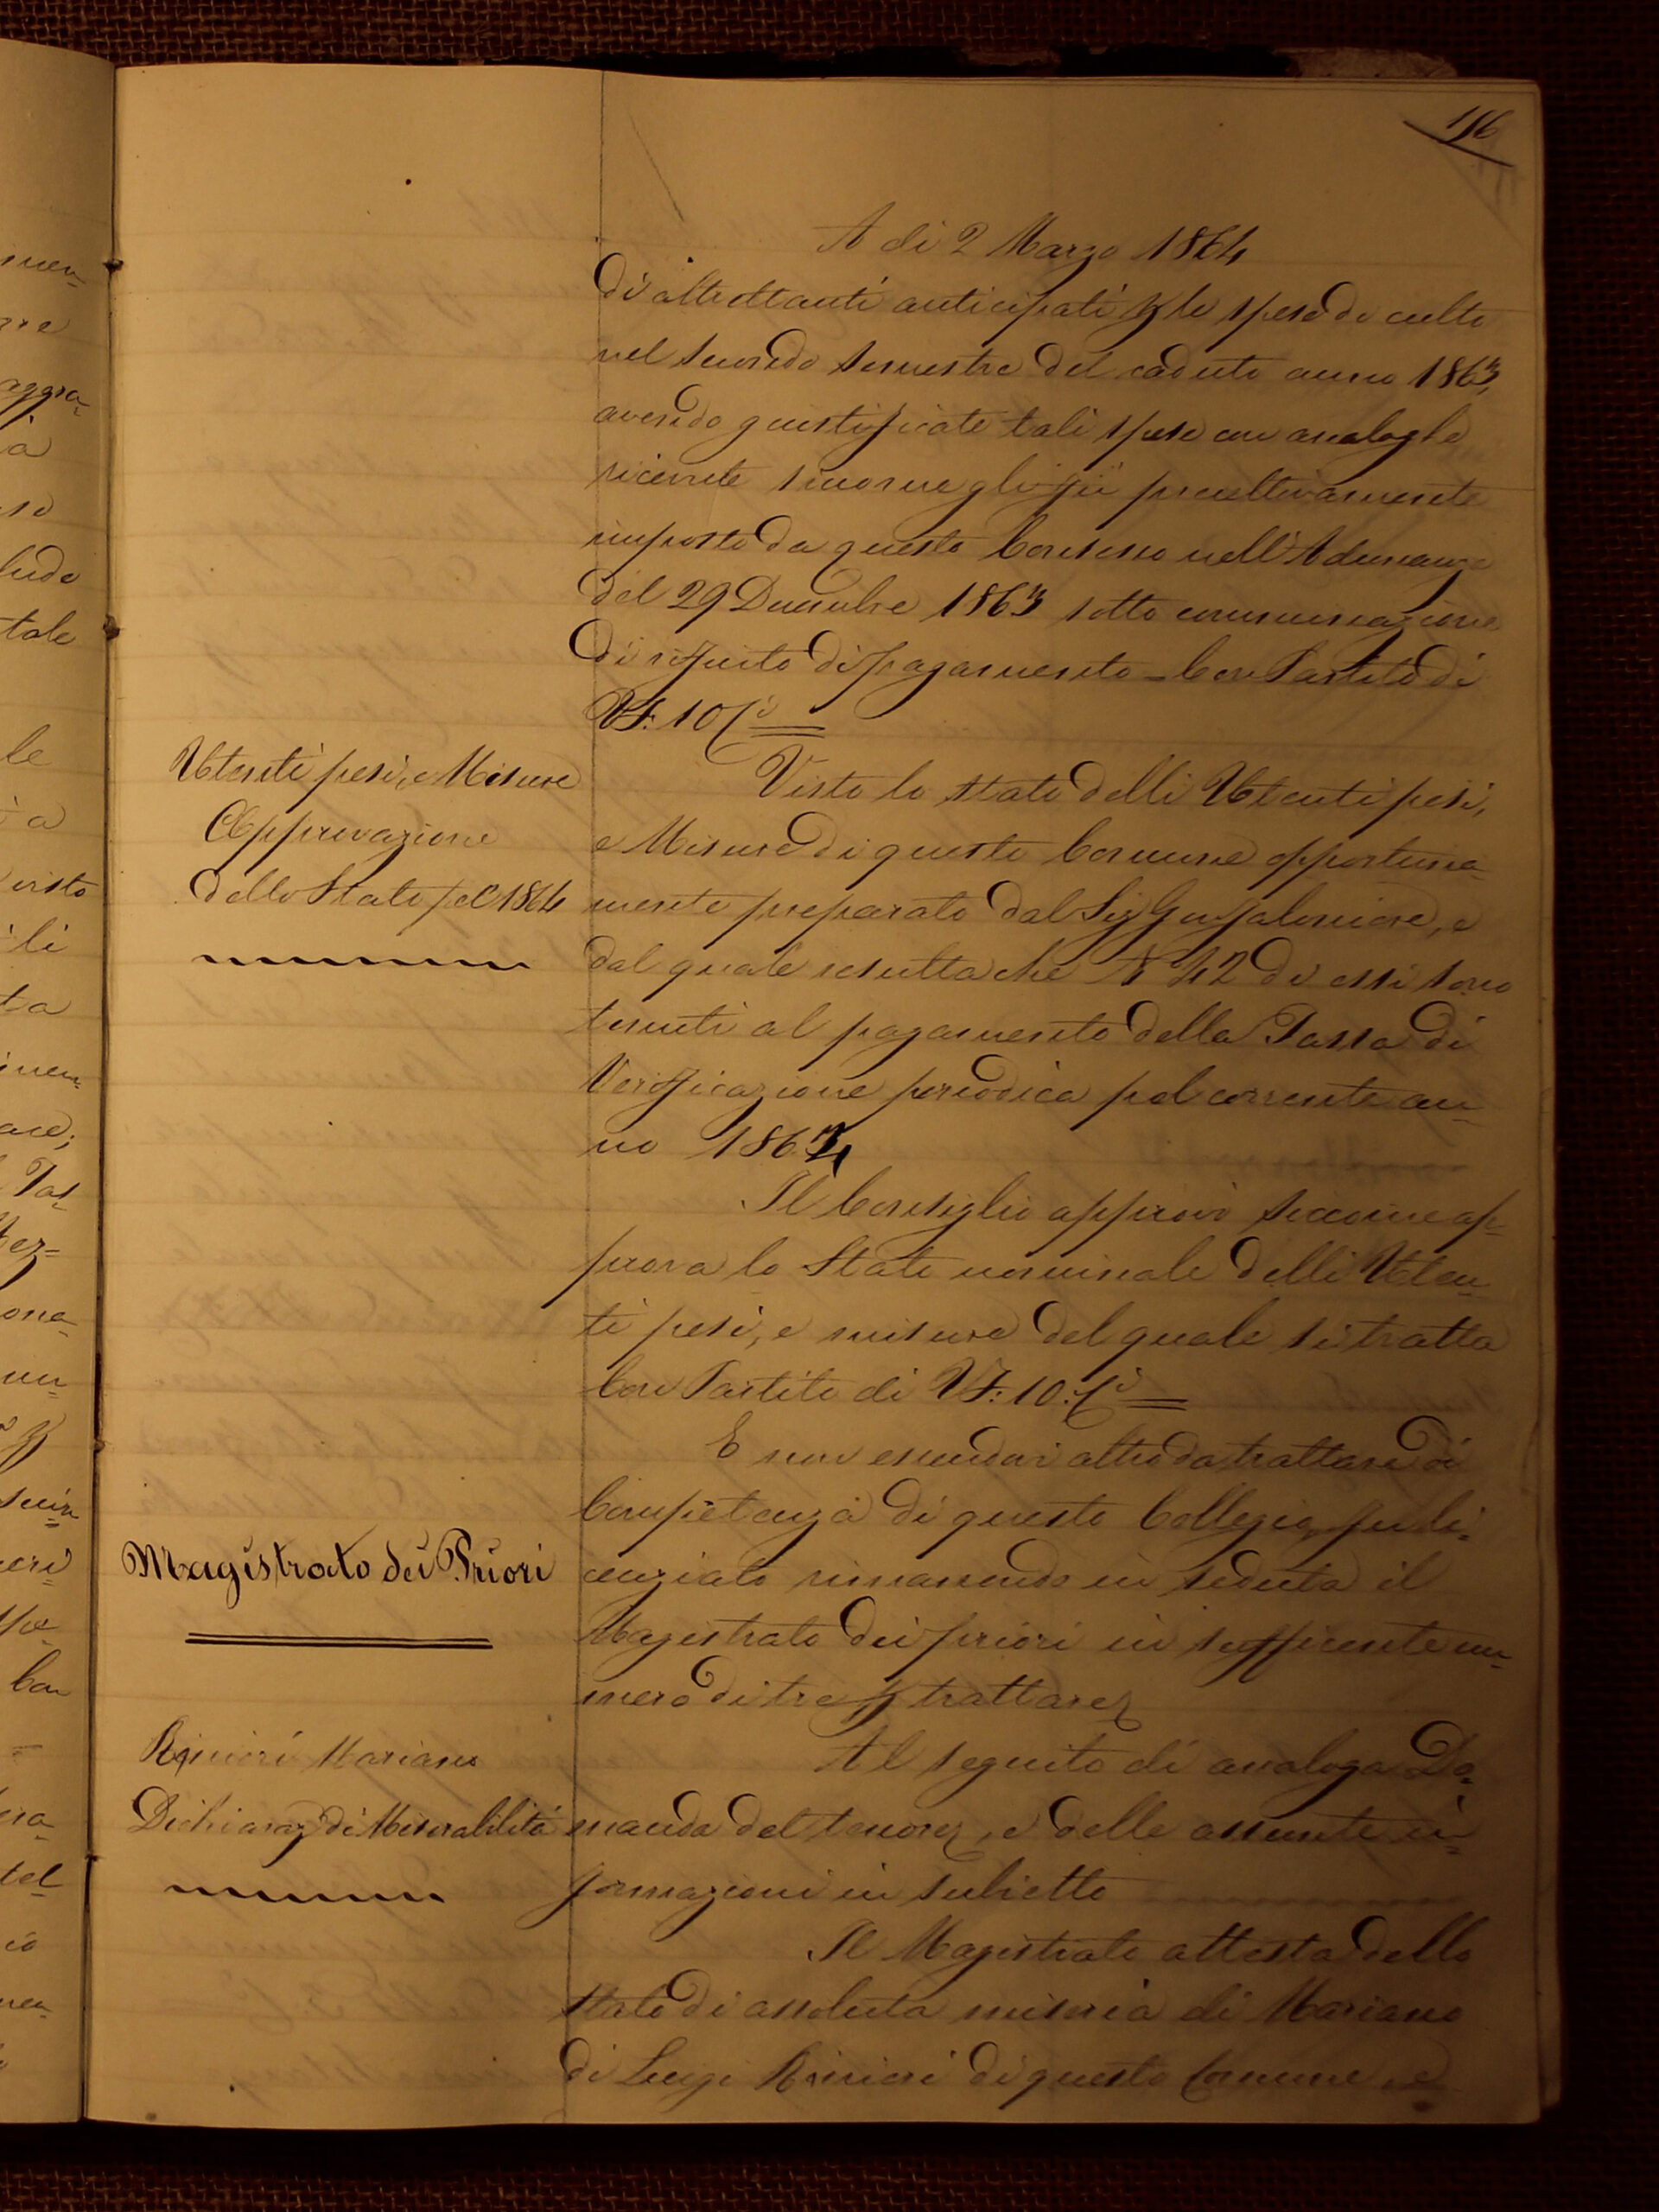 116
A di 2 Marzo 1864
di altrettanti anticipati per le spese di culto
nel secondo semestre del caduto anno 1863,
avendo giustificate tali spese con analoghe
ricevute siccome gli fù
imposto da questo Consesso nell'Adunanza
del 29 Decembre 1863 sotto comminazione
di rifiuto di pagamento - Con Partito di
VF: 10 fi
Utenti pesi, e Misure
Approvazione
dello Stato pel 1864
Visto lo stato delli Utenti pesi,
e Misure di questo Comune opportuna-
mente preparato dal Sig Gonfaloniere, e
dal quale resulta che N 42 di essi sono
tenuti al pagamento della Tassa di
Verificazione periodica pel corrente an-
no 1864
Il Consiglio approvò siccome ap-
prova lo Stato nominale delli Uten-
ti pesi, e misure del quale si tratta
Con Partito di VF: 10: fi
E non essendovi altro da trattare di
Competenza di questo Collegio, fu li-
cenziato rimanendo in seduta il
Magistrato dei Priori
Magistrato dei priori in sufficiente nu-
mero di tre per trattare
Rinieri Mariano
Dichiaraz di Miserabilità
Al seguito di analoga Do-
manda del tenore, e delle assunte in-
formazioni in subietto
Il Magistrato attesta dello
stato di assoluta miseria di Mariano
di Luigi Rinieri di questo Comune, e